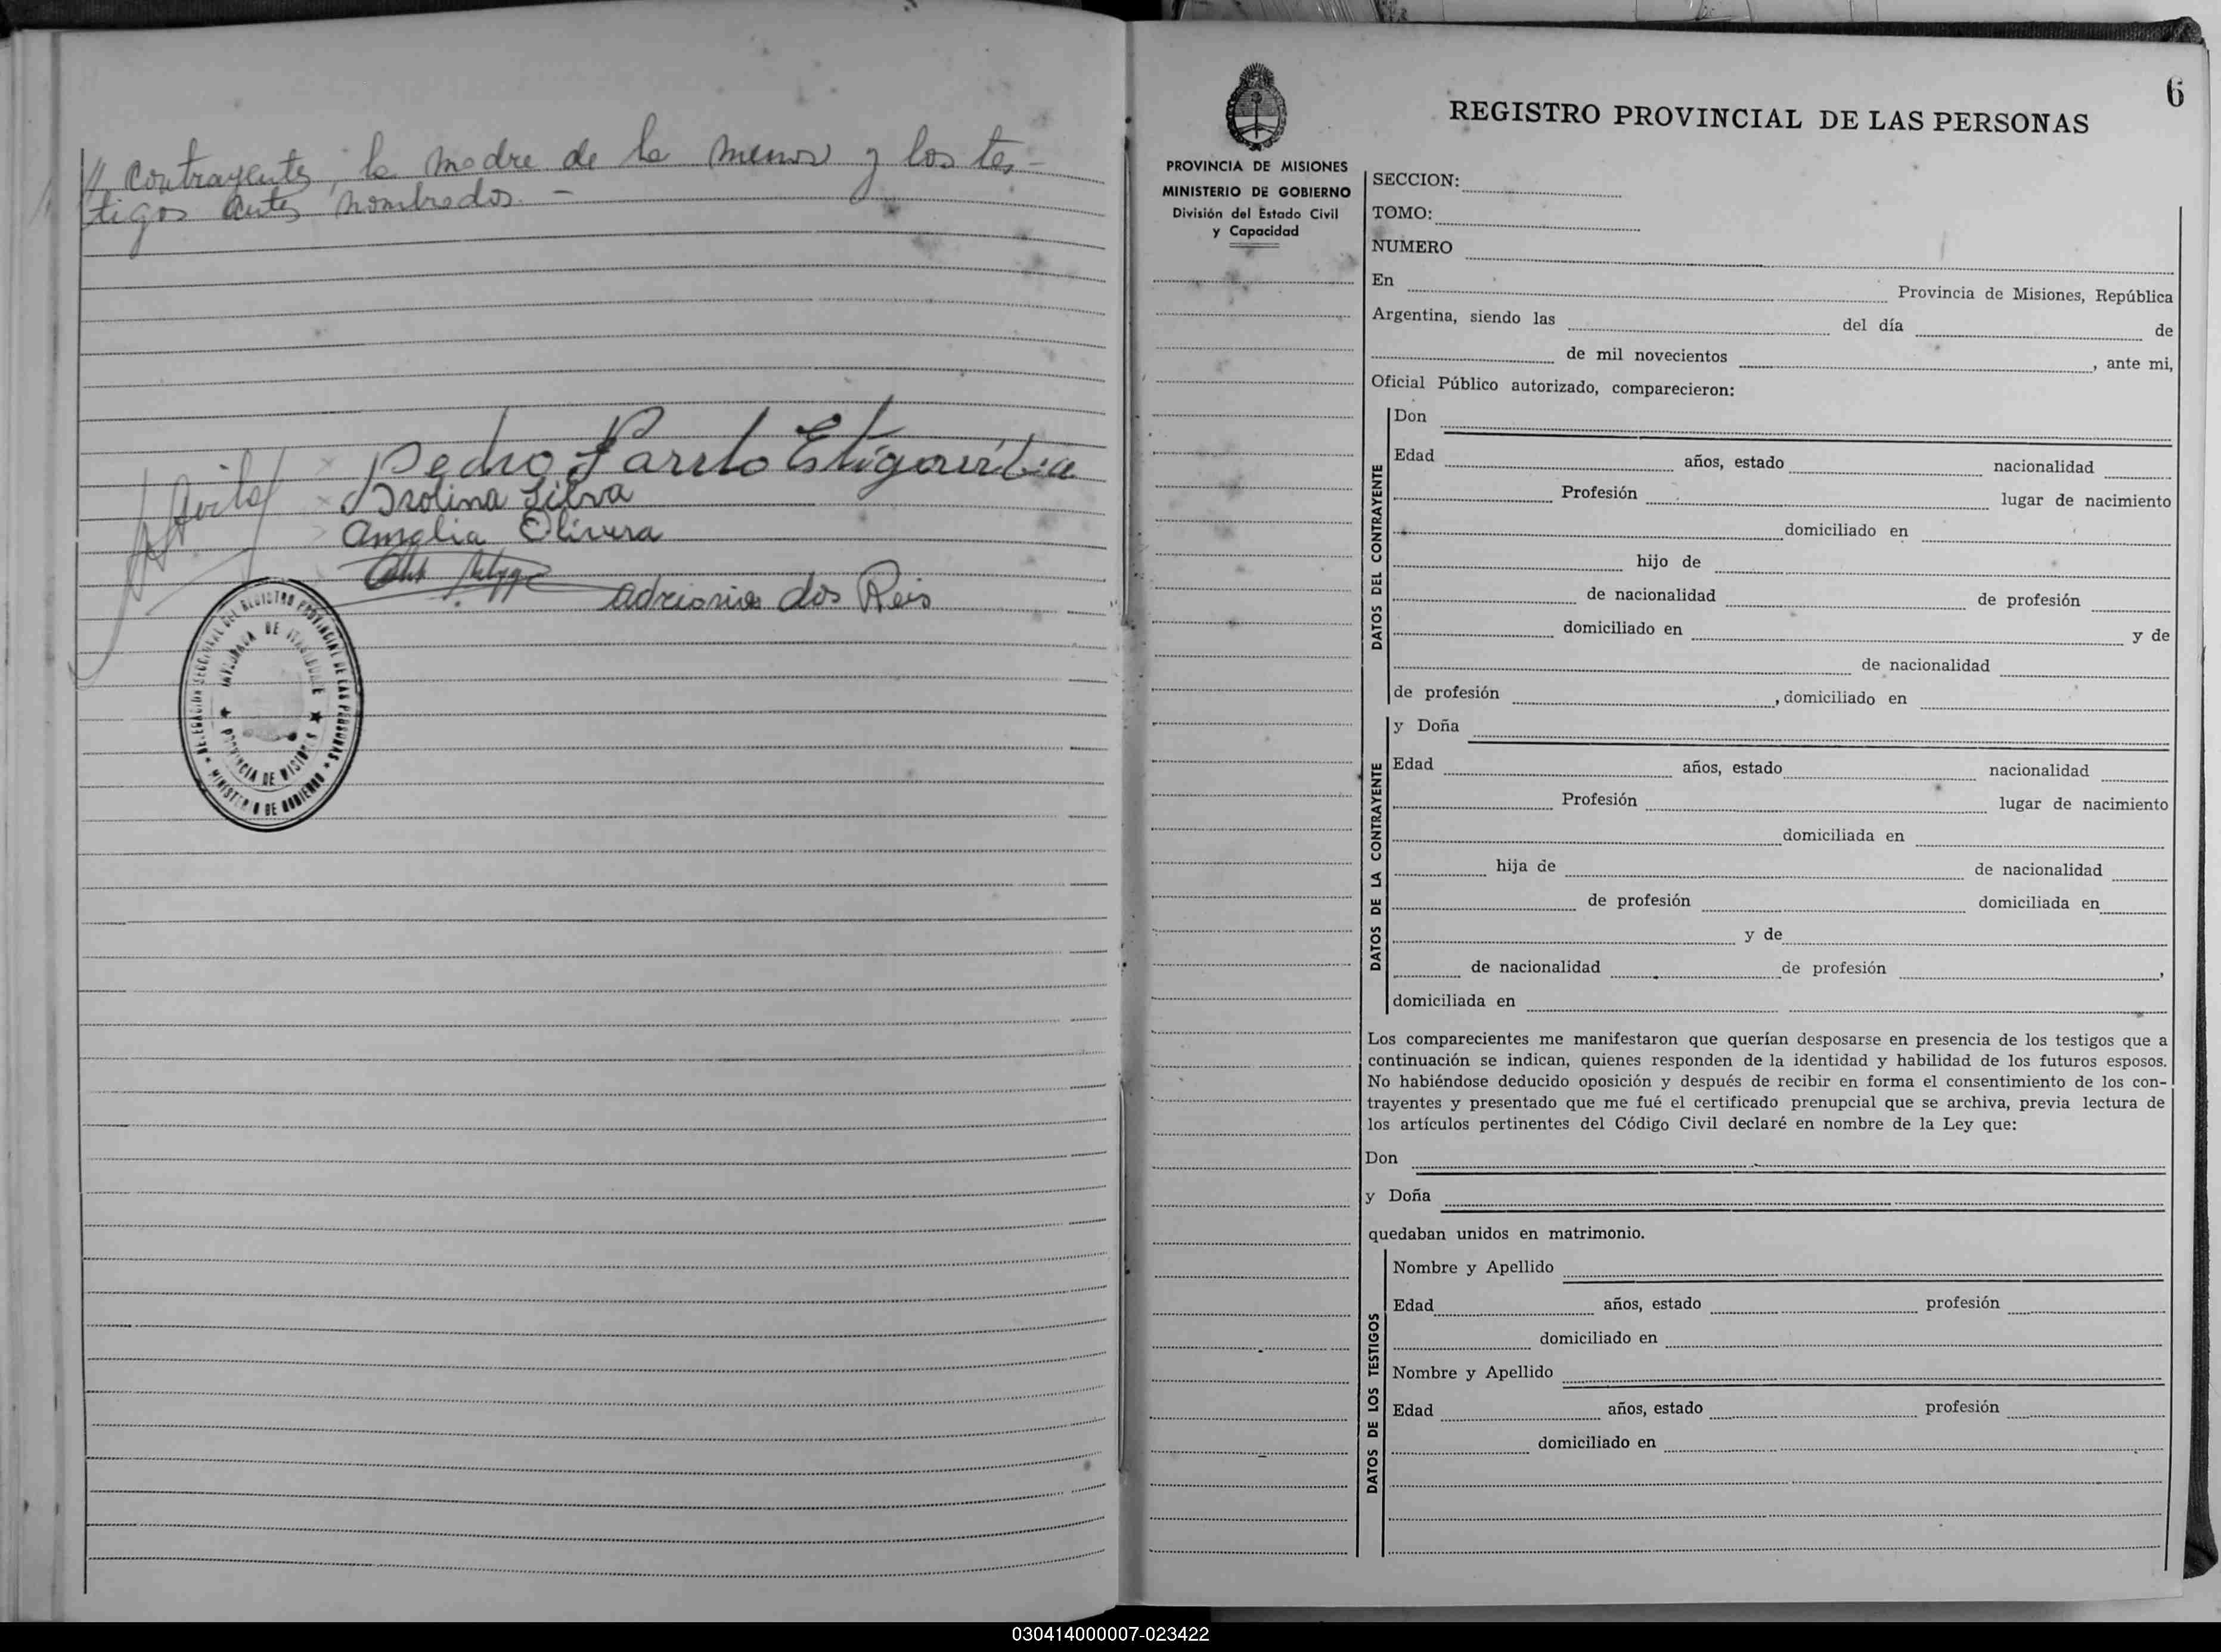 // contrayentes, la madre de la menor y los tes-
tigos antes nombrados. -
Pedro Pardo Estigarribia
Isolina Silva
Amalia Olivera
Adriana dos Reis
Avila
DELEGACION SECCIONAL DEL REGISTRO PROVINCIAL DE LAS PERSONAS
MINISTERIO DE GOBIERNO
DE
PROVINCIA DE MISIONES
6
REGISTRO PROVINCIAL DE LAS PERSONAS
PROVINCIA DE MISIONES
MINISTERIO DE GOBIERNO
División del Estado Civil
y Capacidad
SECCION:
TOMO:
NUMERO
En Provincia de Misiones, República
Argentina, siendo las del día de
de mil novecientos , ante mi,
Oficial Público autorizado, comparecieron:
DATOS DEL CONTRAYENTE
Don
Edad años, estado nacionalidad
Profesión lugar de nacimiento
domiciliado en
hijo de
de nacionalidad de profesión
domiciliado en y de
de nacionalidad
de profesión , domiciliado en
DATOS DE LA CONTRAYENTE
y Doña
Edad años, estado nacionalidad
Profesión lugar de nacimiento
domiciliada en
hija de de nacionalidad
de profesión domiciliada en
y de
de nacionalidad de profesión ,
domiciliada en
Los comparecientes me manifestaron que querían desposarse en presencia de los testigos que a
continuación se indican, quienes responden de la identidad y habilidad de los futuros esposos.
No habiéndose deducido oposición y después de recibir en forma el consentimiento de los con-
trayentes y presentado que me fué el certificado prenupcial que se archiva, previa lectura de
los artículos pertinentes del Código Civil declaré en nombre de la Ley que:
Don
y Doña
quedaban unidos en matrimonio.
DATOS DE LOS TESTIGOS
Nombre y Apellido
Edad años, estado profesión
domiciliado en
Nombre y Apellido
Edad años, estado profesión
domiciliado en
030414000007-023422